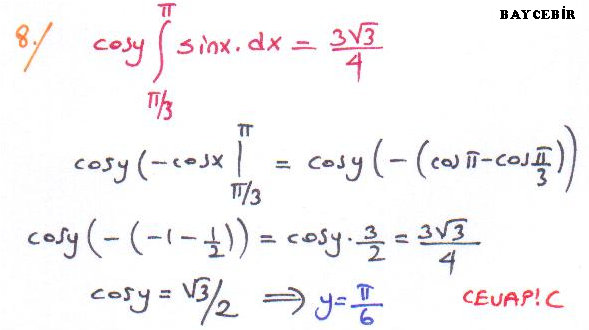 BAYCEBİR
8./ cosy ∫_{π/3}^{π} sinx.dx = 3√3/4
cosy(-cosx |_{π/3}^{π} = cosy(-(cosπ-cosπ/3))
cosy(-(-1-1/2)) = cosy.3/2 = 3√3/4
cosy = √3/2 ⟹ y=π/6 CEVAP!C